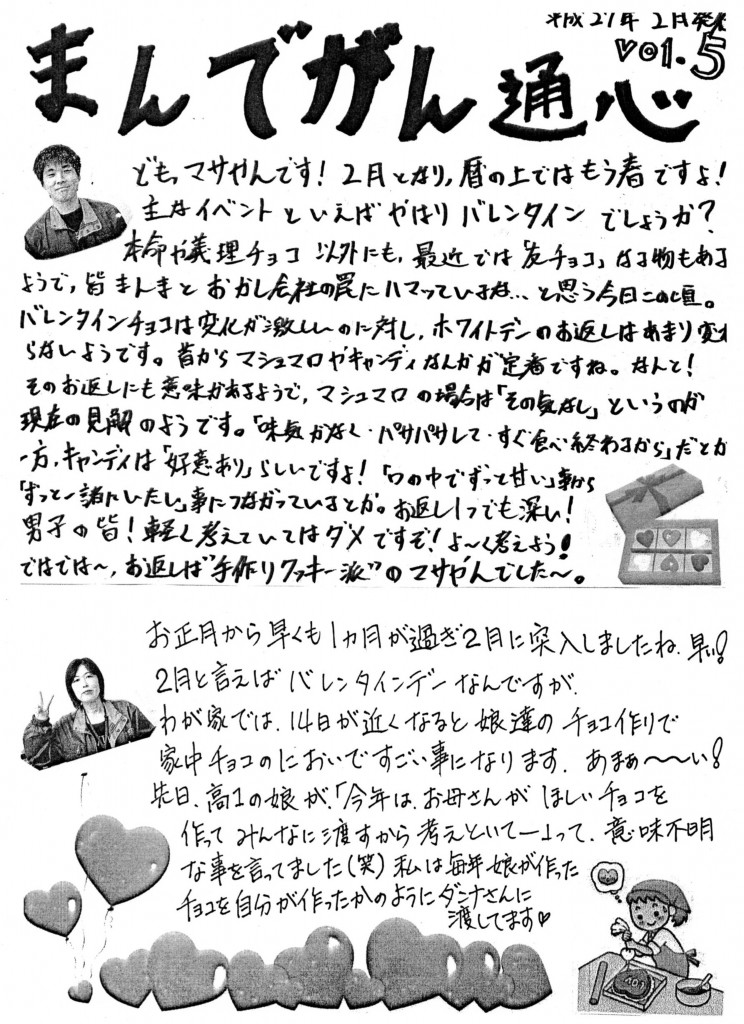 平成27年 2月発
vol.5
まんでがん通心
ども、マサやんです！2月となり、暦の上ではもう春ですよ！
主なイベントといえばやはりバレンタインでしょうか？
本命や義理チョコ以外にも、最近では「友チョコ」なる物もある
ようで、皆まんまとおかし会社の罠にハマっているな…と思う今日この頃。
バレンタインチョコは変化が激しいのに対し、ホワイトデーのお返しはあまり変わ
らないようです。昔からマシュマロやキャンディなんかが定番ですね。なんと！
そのお返しにも意味があるようで、マシュマロの場合は「その気なし」というのが
現在の見解のようです。「味気がなく・パサパサして・すぐ食べ終わるから」だとか
一方、キャンディは「好意あり」らしいですよ！「口の中でずっと甘い」事から
「ずっと一緒にいたい」事につながっているとか。お返し1つでも深い！
男子の皆！軽く考えていてはダメですぞ！よ〜く考えよう！
ではでは〜、お返しは"手作りクッキー派"のマサやんでした〜。
お正月から早くも1ヵ月が過ぎ2月に突入しましたね。早い！
2月と言えばバレンタインデーなんですが、
わが家では、14日が近くなると娘達のチョコ作りで
家中チョコのにおいですごい事になります。あまぁ〜〜〜い！
先日、高1の娘が、「今年は、お母さんがほしいチョコを
作ってみんなに渡すから考えといてー」って、意味不明
な事を言ってました（笑）私は毎年娘が作った
チョコを自分が作ったかのようにダンナさんに
渡してます♡